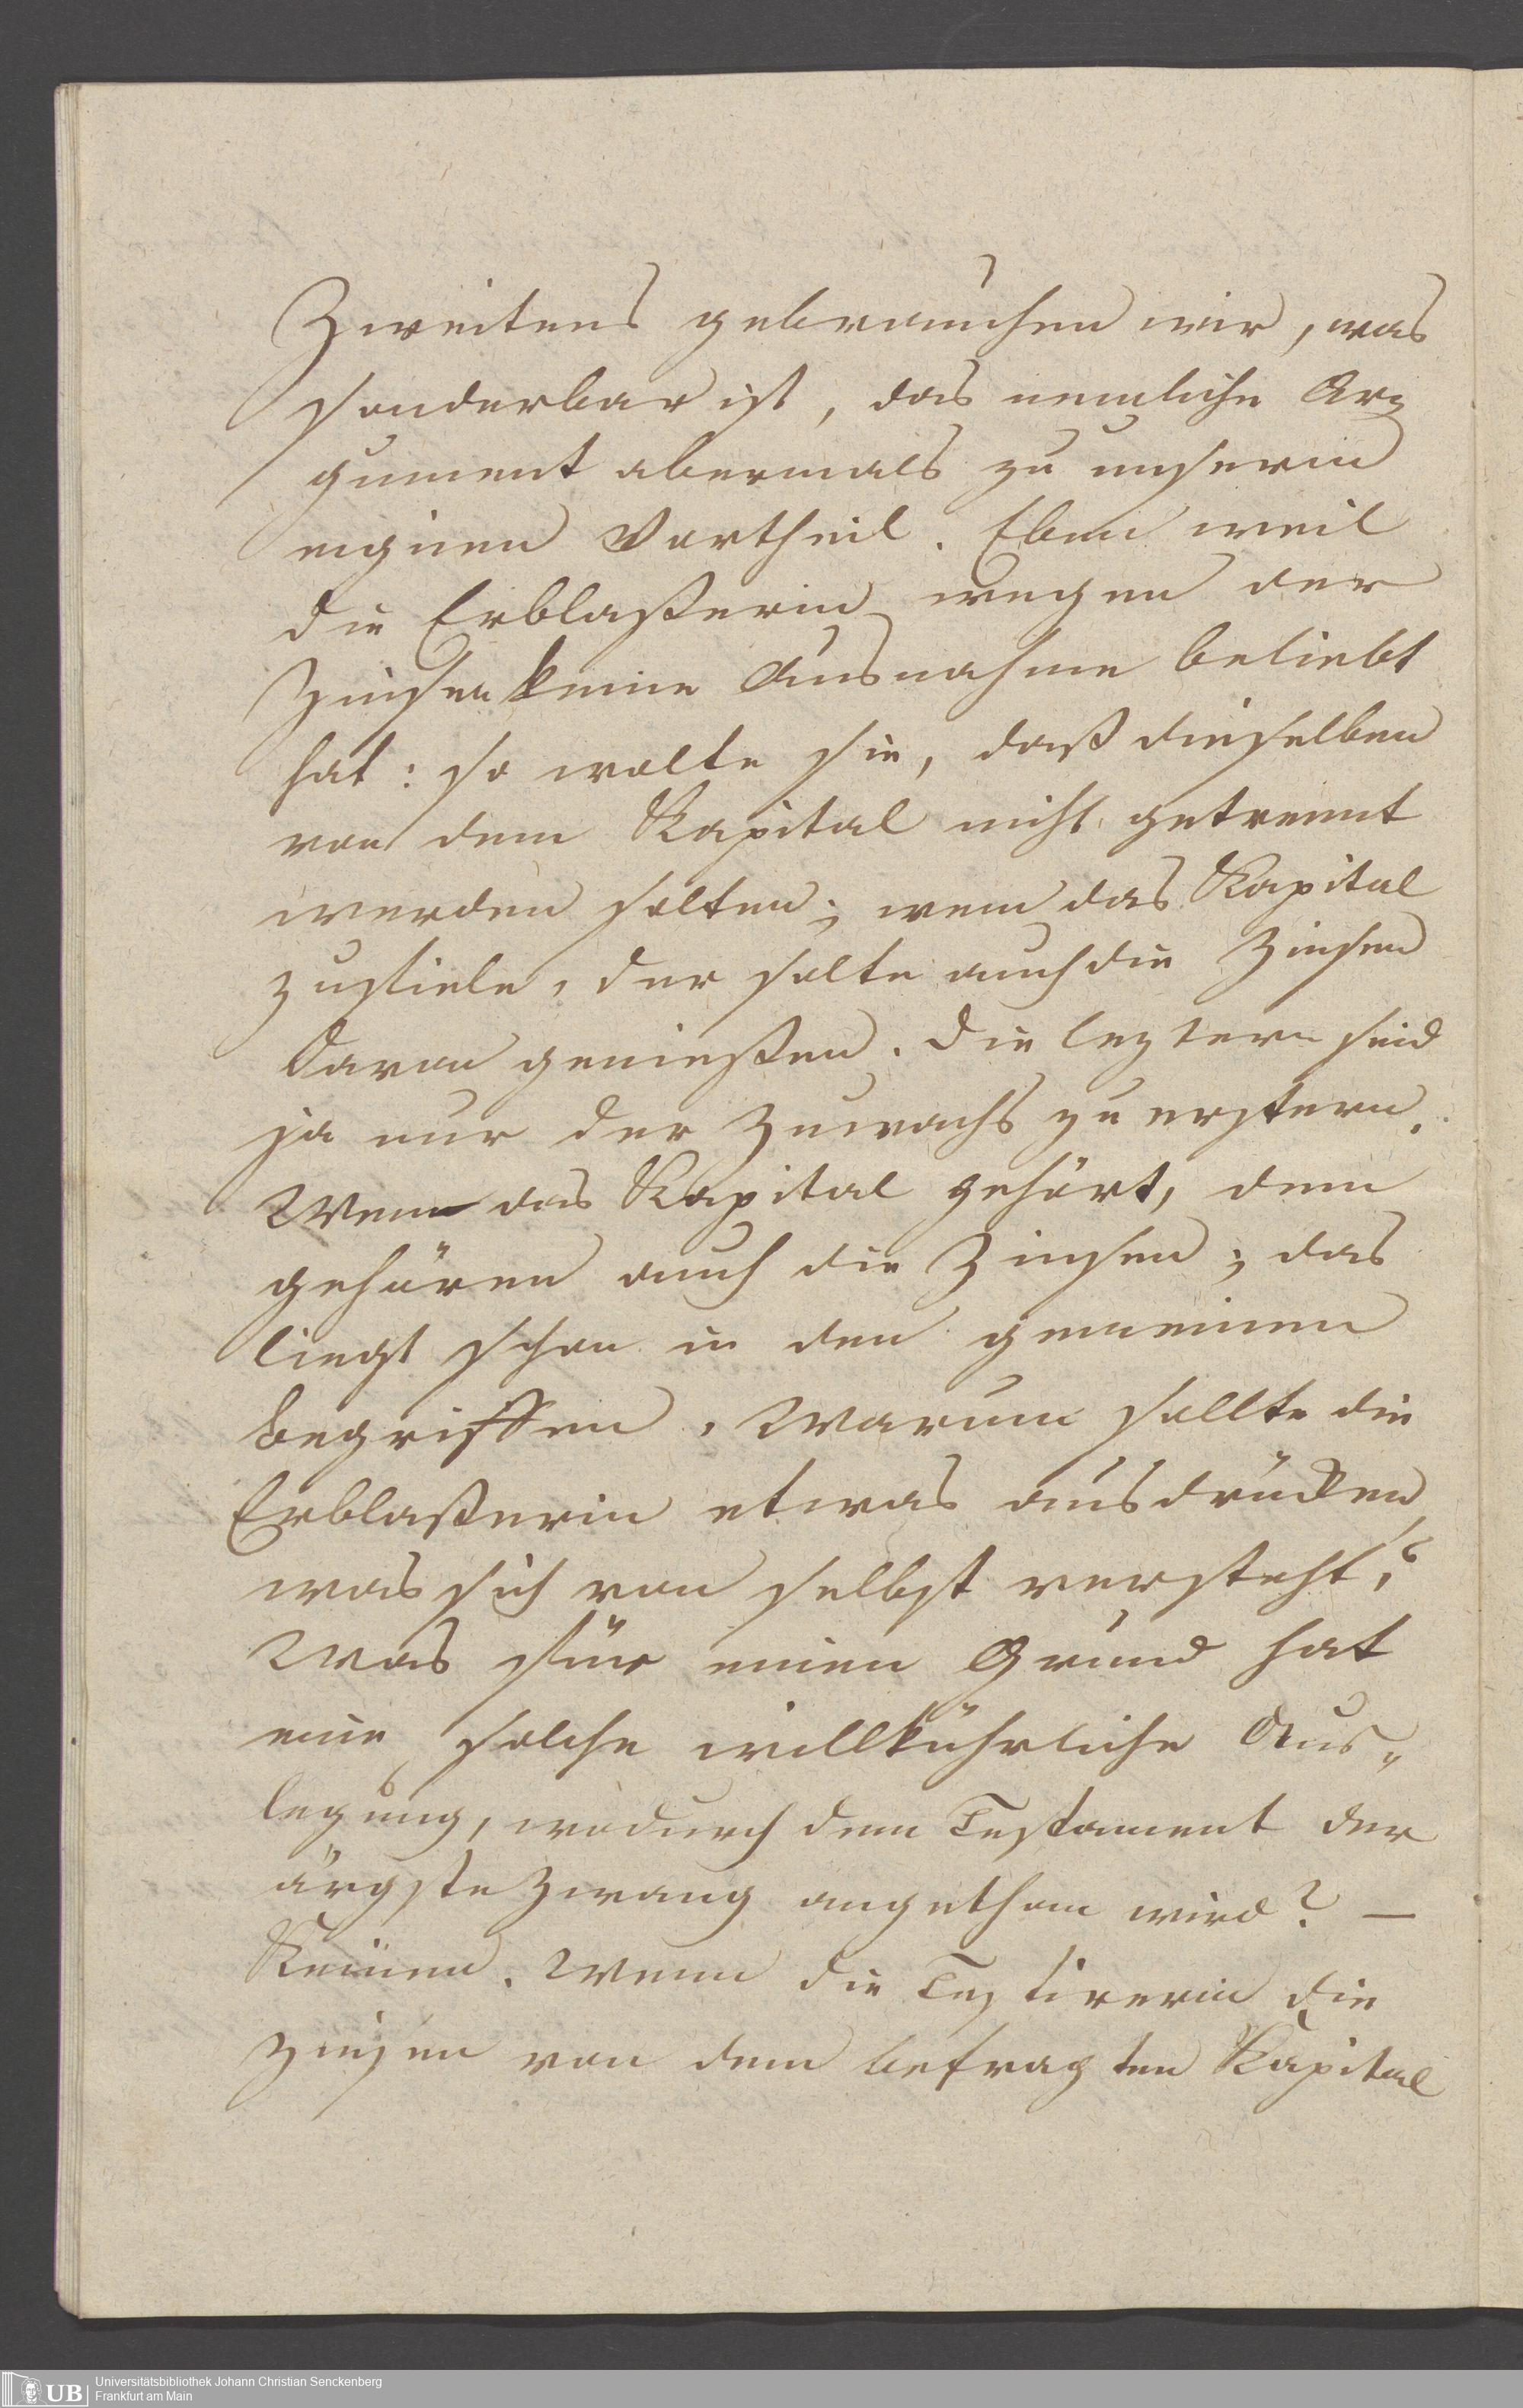 Zweitens gebrauchen wir, was
sonderbar ist, das nemliche Ar=
gument abermals zu unserm
eignen Vortheil. Eben weil
die Erblaßerin wegen der
Zinsen keine Ausnahme beliebt
hat: so wolte sie, daß dieselben
von dem Kapital nicht getrennt
werden solten; wem das Kapital
zufiele, der solte auch die Zinsen
davon genießen. Die leztern sind
ja nur der Zuwachs zu erstern.
Wem das Kapital gehört, dem
gehören auch die Zinsen; das
liegt schon in den gemeinen
Begriffen. Warum sollte die
Erblaßerin etwas ausdrücken,
was sich von selbst versteht?
Was für einen Grund hat
eine solche willkührliche Aus=
legung, wodurch dem Testament der
ärgste Zwang angethan wird? —
Keinen. Wenn die Testirerin die
Zinsen von dem befragten Kapital
UB
Universitätsbibliothek Johann Christian Senckenberg
Frankfurt am Main